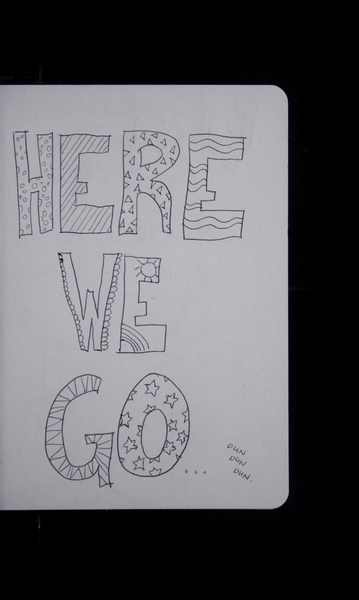 HERE
WE
GO...
DUN
DUN
DUN.